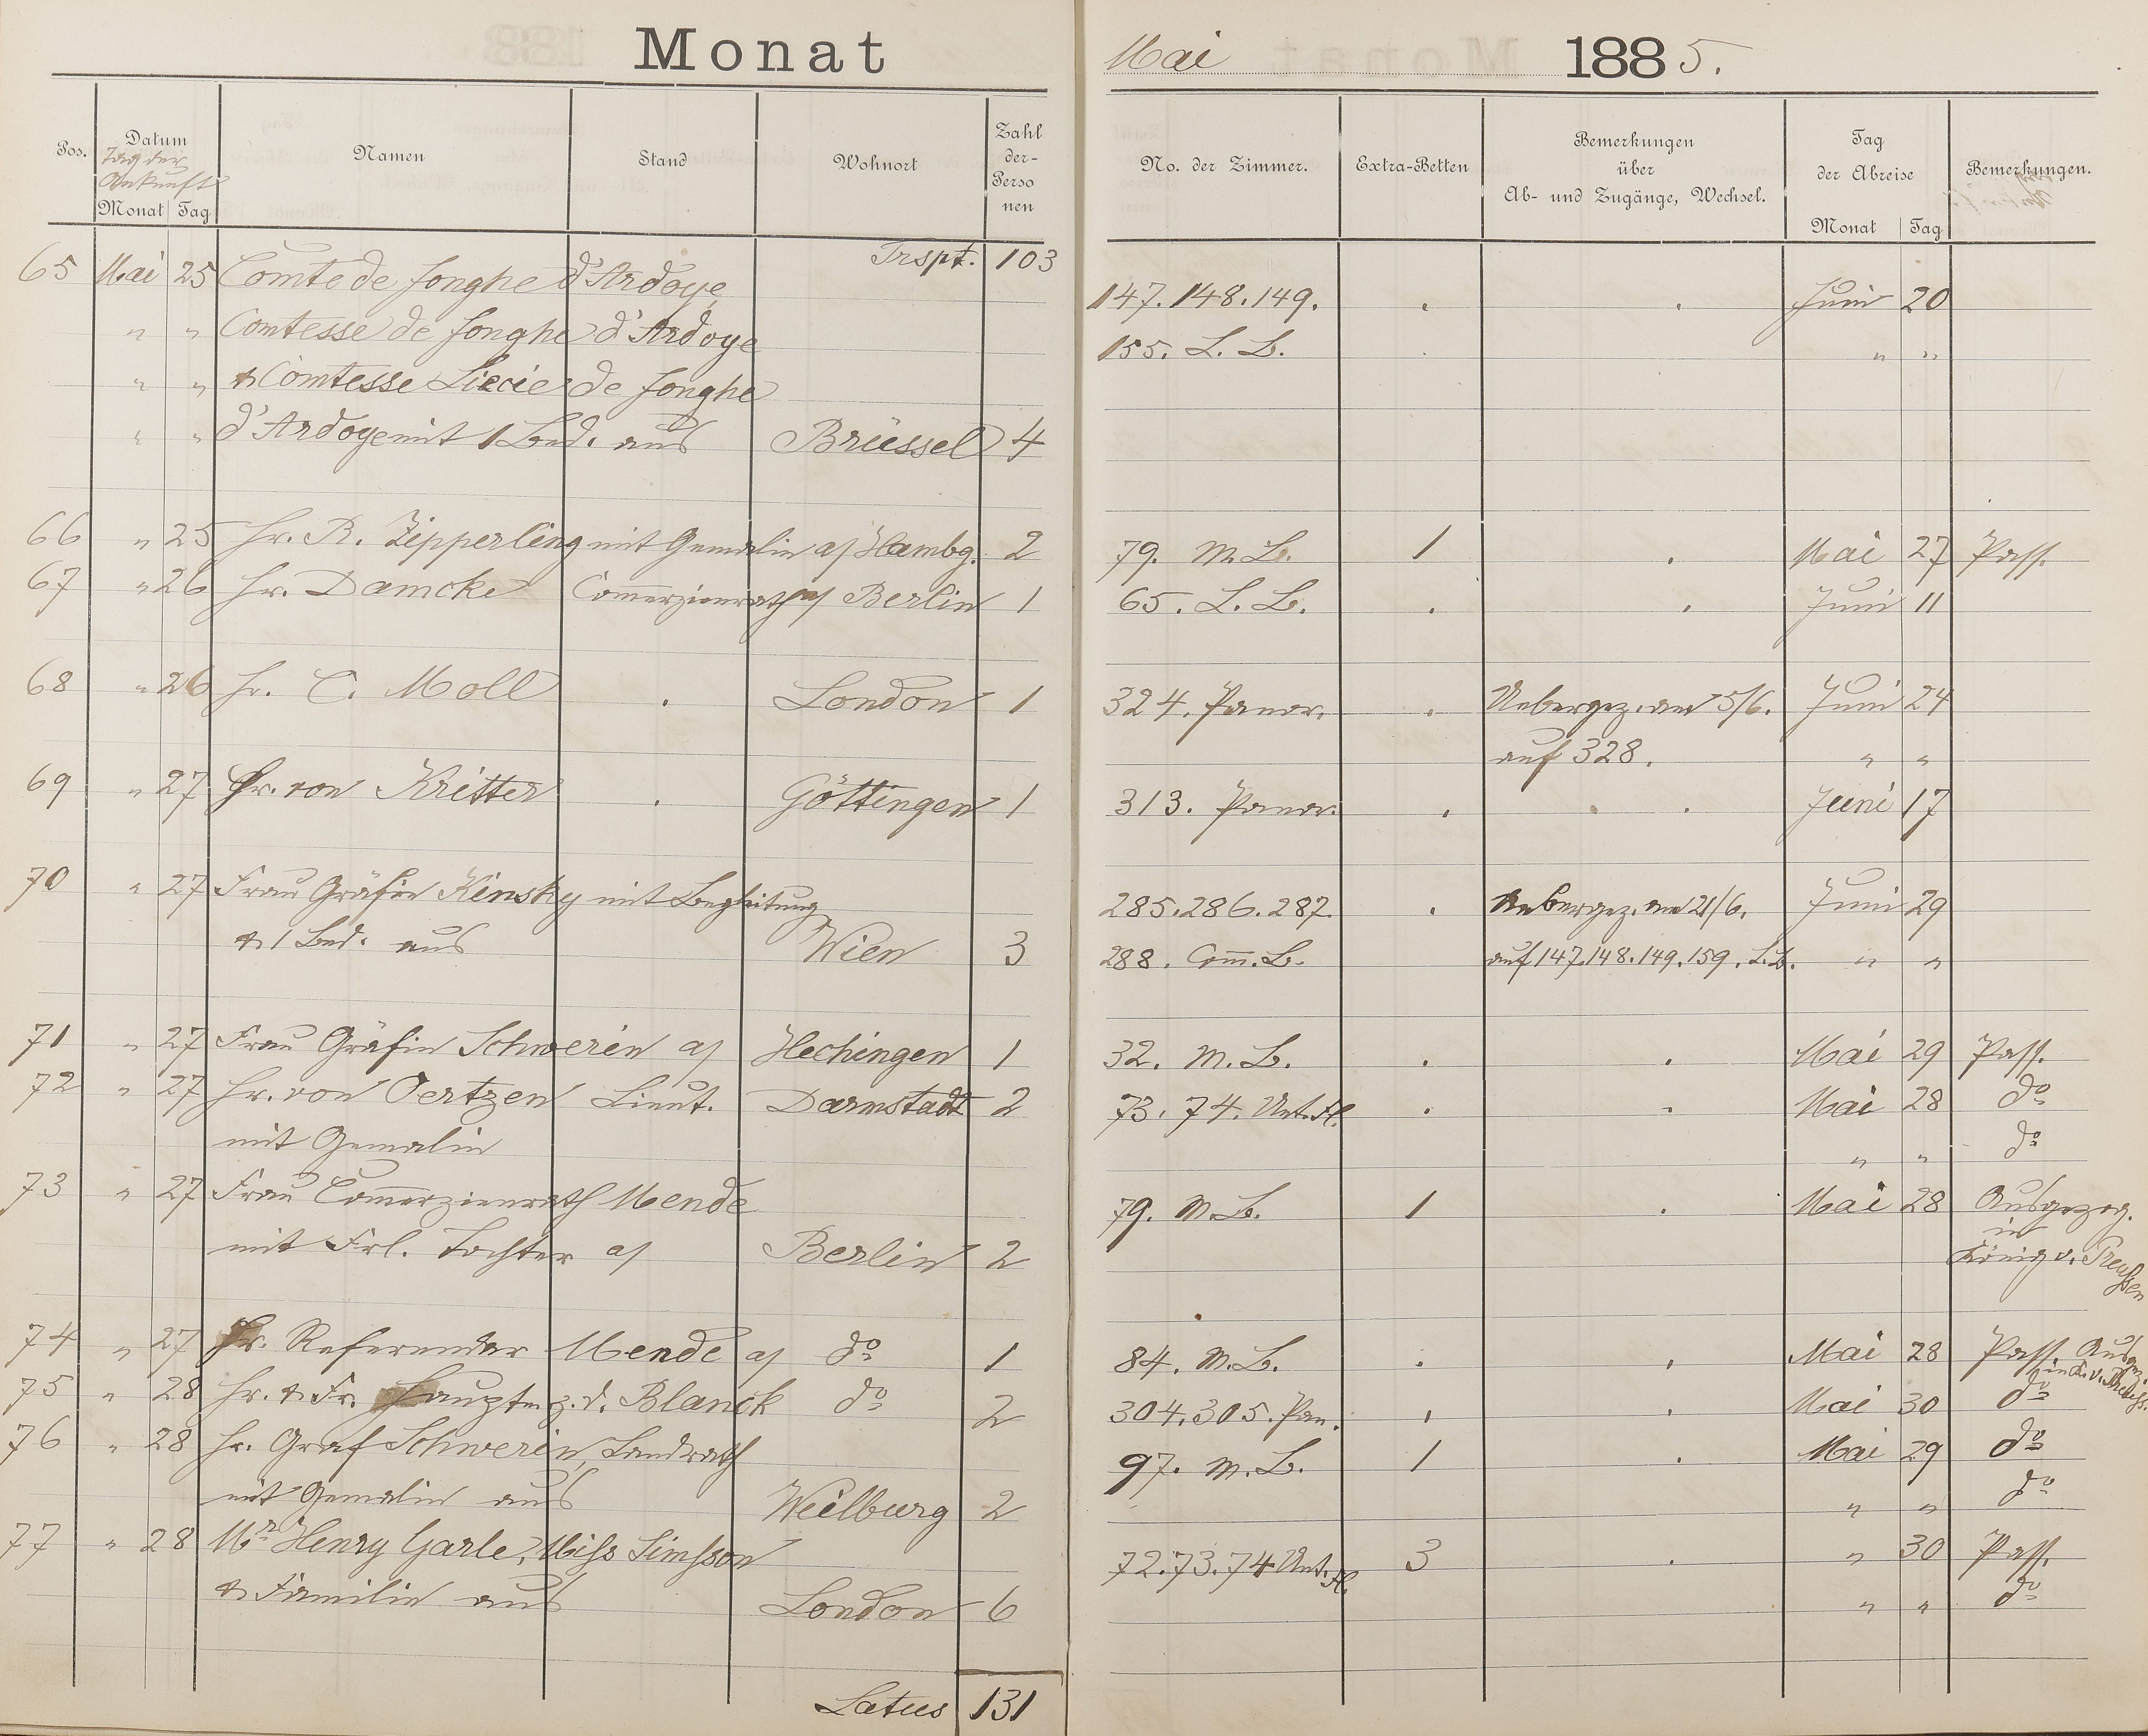 Monat
Mai 1885.
Pos.
Datum
Tag der
Ankunft
Monat Tag
Namen
Stand
Wohnort
Zahl
der-
Perso
nen
No. der Zimmer.
Extra-Betten
Bemerkungen
über
Ab- und Zugänge, Wechsel.
Tag
der Abreise
Monat Tag
Bemerkungen.
Trspt. 103
65 Mai 25 Comte de Jonghe d'Ardoye 147. 148. 149. . . Juni 20
" " Comtesse de Jonghe d'Ardoye 155. L. B. . " "
" " & Comtesse de Jonghe
" " d'Ardoye mit 1 Bed. aus Brüssel 4
66 " 25 Hr. R. Zipperling mit Gemalin a/ Hambg. 2 79. M. B. 1 . Mai 27 Pass.
67 " 26 Hr. Damcke Commerzienrath a/ Berlin 1 65. L. B. . . Juni 11
68 " 26 Hr. C. Moll . London 1 324. Panor. . Uebergez. am 5/6. Juni 24
auf 328. " "
69 " 27 Hr. von Kritter . Göttingen 1 313. Panor. . . Juni 17
70 " 27 Frau Gräfin Kinsky mit Begleitung 285. 286. 287. . Uebergez. am 21/6. Juni 29
& 1 Bed. aus Wien 3 288. Com̄. B. auf 147. 148. 149. 159. L. B. " "
71 " 27 Frau Gräfin Schwerin a/ Hechingen 1 32. M. B. . . Mai 29 Pass.
72 " 27 Hr. von Oertzen Lieut. Darmstadt 2 73. 74. Unt. Fl. . . Mai 28 do
mit Gemalin " " do
73 " 27 Frau Com̄erzienrath Mende 79. M. B. 1 . Mai 28 Ausgezog.
in
König v. Preussen
mit Frl. Tochter a/ Berlin 2
74 " 27 Hr. Referendar Mende a/ do 1 84. M. B. . . Mai 28 Pass. Ausgez.
in K. v. Preuss.
75 " 28 Hr. & Fr. Hauptm. z. D. Blanck do 2 304. 305. Pan. . . Mai 30 do
76 " 28 Hr. Graf Schwerin, Landrath 97. M. B. 1 . Mai 29 do
mit Gemalin aus Weilburg 2 " " do
77 " 28 Mr Henry Garle, Miss Simsson 72. 73. 74 Unt. Fl. 3 . " 30 Pass.
& Familie aus London 6 " " do
Latus 131